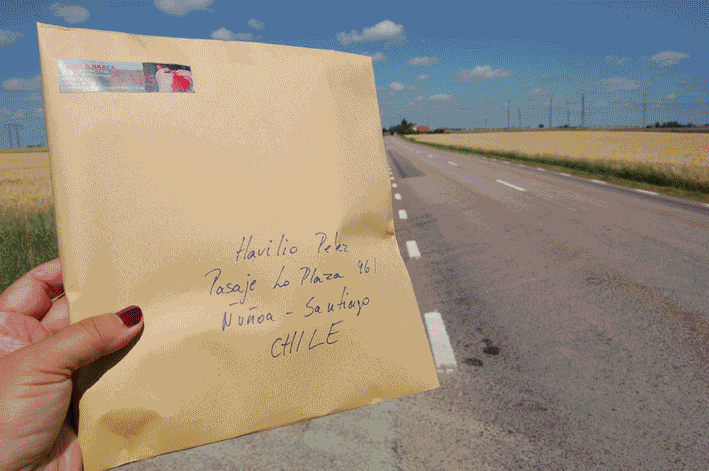 Havilio Pekz
Pasaje Lo Plaza 961
Ñuñoa - Santiago
CHILE